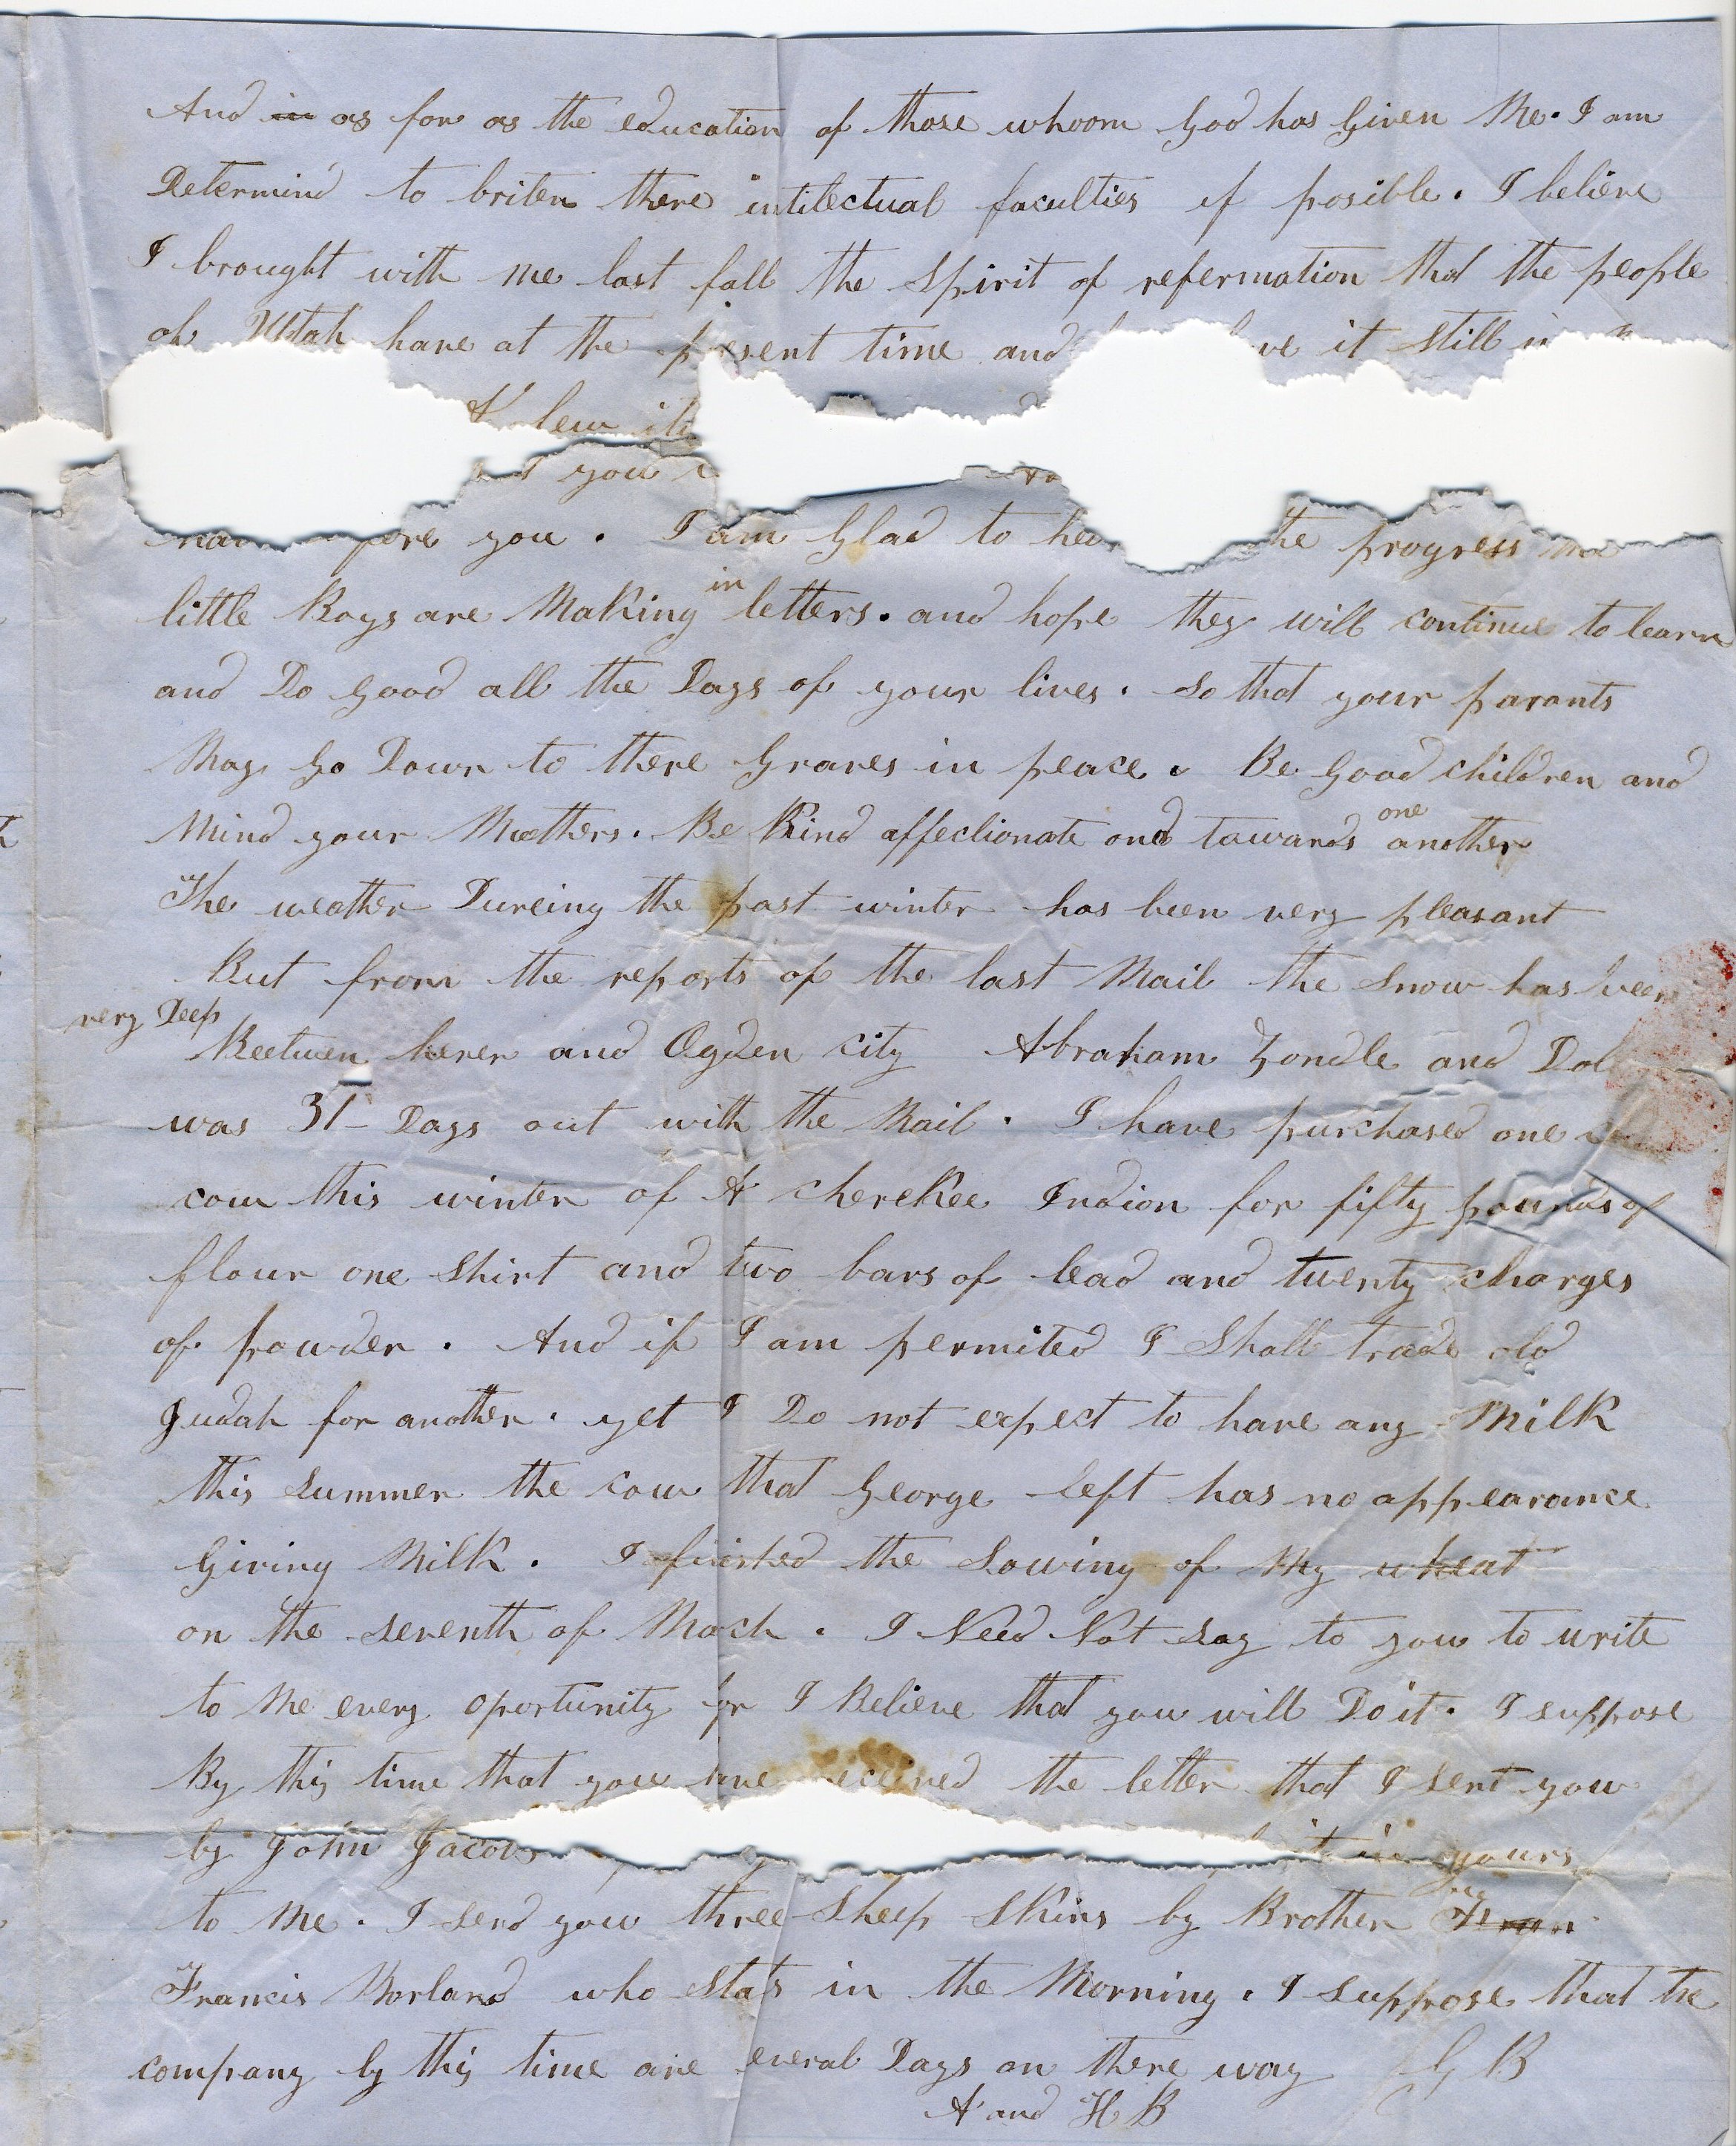 And in as for as the education of those whoom God has Given Me. I am
Determind to briten there intilectual faculties if posible. I believe
I brought with me last fall the Spirit of refermation that the people
of Utah have at the present time and ve it still in
few
you
you. I am Glad to hear the progress
little Boys are Making in letters. and hope they will continue to learn
and Do Good all the Days of your lives. So that your parants
May Go Down to there Graves in peace. Be Good children and
Mind your Moethers. Be Kind affectionate and towards one another
The weather Dureing the past winter has been very pleasant
But from the reports of the last Mail the Snow has been
very Deep
Beetwen herer and Ogden city Abraham Zondle and Dol
was 31 Days out with the Mail. I have purchased one
cow this winter of A cherekee Indion for fifty pounds of
flour one Shirt and two bars of lead and twenty charges
of powder. And if I am permited I Shall trade old
Judah for another. yet I Do not expect to have any Milk
this Summer the cow that George left has no appearance
Giving Milk. I finished the Sowing of My wheat
on the seventh of Mach. I Need Not Say to you to write
to Me every oportunity for I Believe that you will Do it. I suppose
By this time that you have received the letter that I sent you
by John Jacobs in yours
to Me. I send you three Sheep Skins by Brother Fran
Francis Borland who stats in the Morning. I suppose that the
company by this time are everal Days on there way G B
A and H B